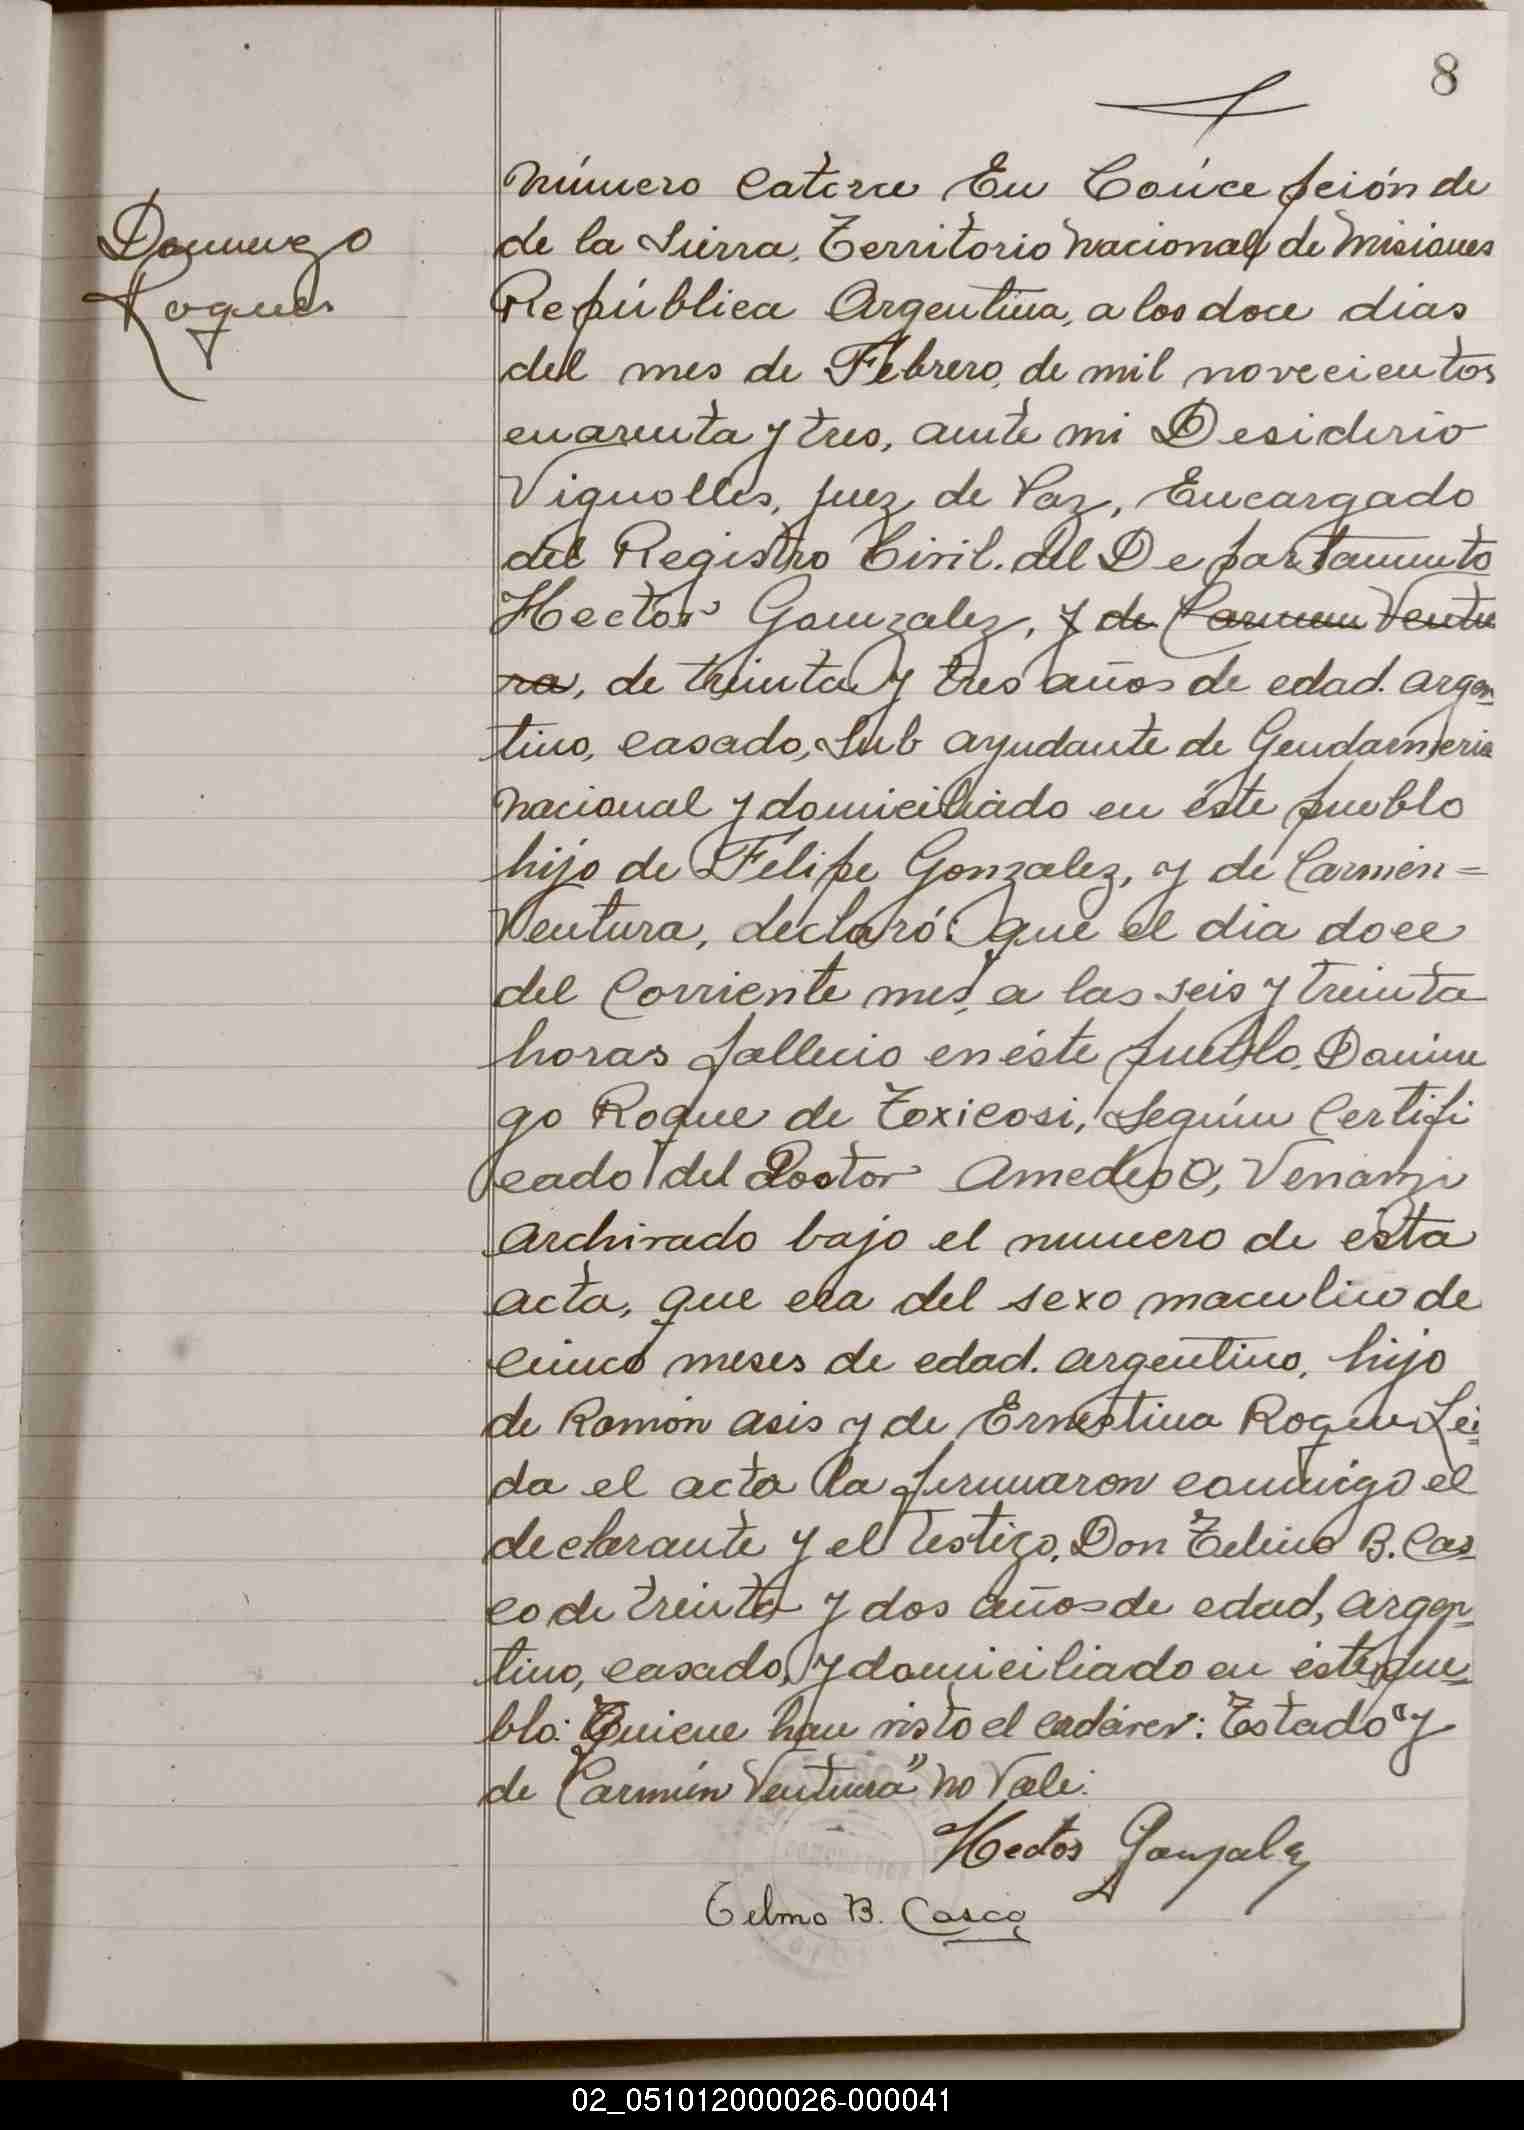 8
Domingo
Roques
Número Catorce En Concepción de
de la Sierra, Territorio Nacional de Misiones
República Argentina, a los doce dias
del mes de Febrero, de mil novecientos
cuarenta y tres, ante mi Desiderio
Vignolles, Juez de Paz, Encargado
del Registro Civil. del Departamento
Hector Gonzalez, y de Carmen Ventu
ra, de treinta y tres años de edad. argen
tino, casado, Sub ayudante de Gendarmeria
Nacional y domiciliado en éste pueblo
hijo de Felipe Gonzalez, y de Carmen =
Ventura, declaró: que el dia doce
del Corriente mes, a las seis y treinta
horas fallecio en éste pueblo, Domin
go Roque de Toxicosi, Según Certifi
cado del Doctor Amedeo O,
Archivado bajo el numero de ésta
acta, que era del sexo maculino de
cinco meses de edad. argentino, hijo
de Ramón Asis y de Ernestina Roques Lei=
da el acta la firmaron conmigo el
declarante y el testigo, Don Telmo B. Cas=
co de treinta y dos años de edad, argen=
tino, casado, y domiciliado en éste pue=
blo: Quiene han visto el cadáver: Testado "y
de Carmén Ventura" No Vale:
Hector Gonzalez
Telmo B. Casco
02_051012000026-000041